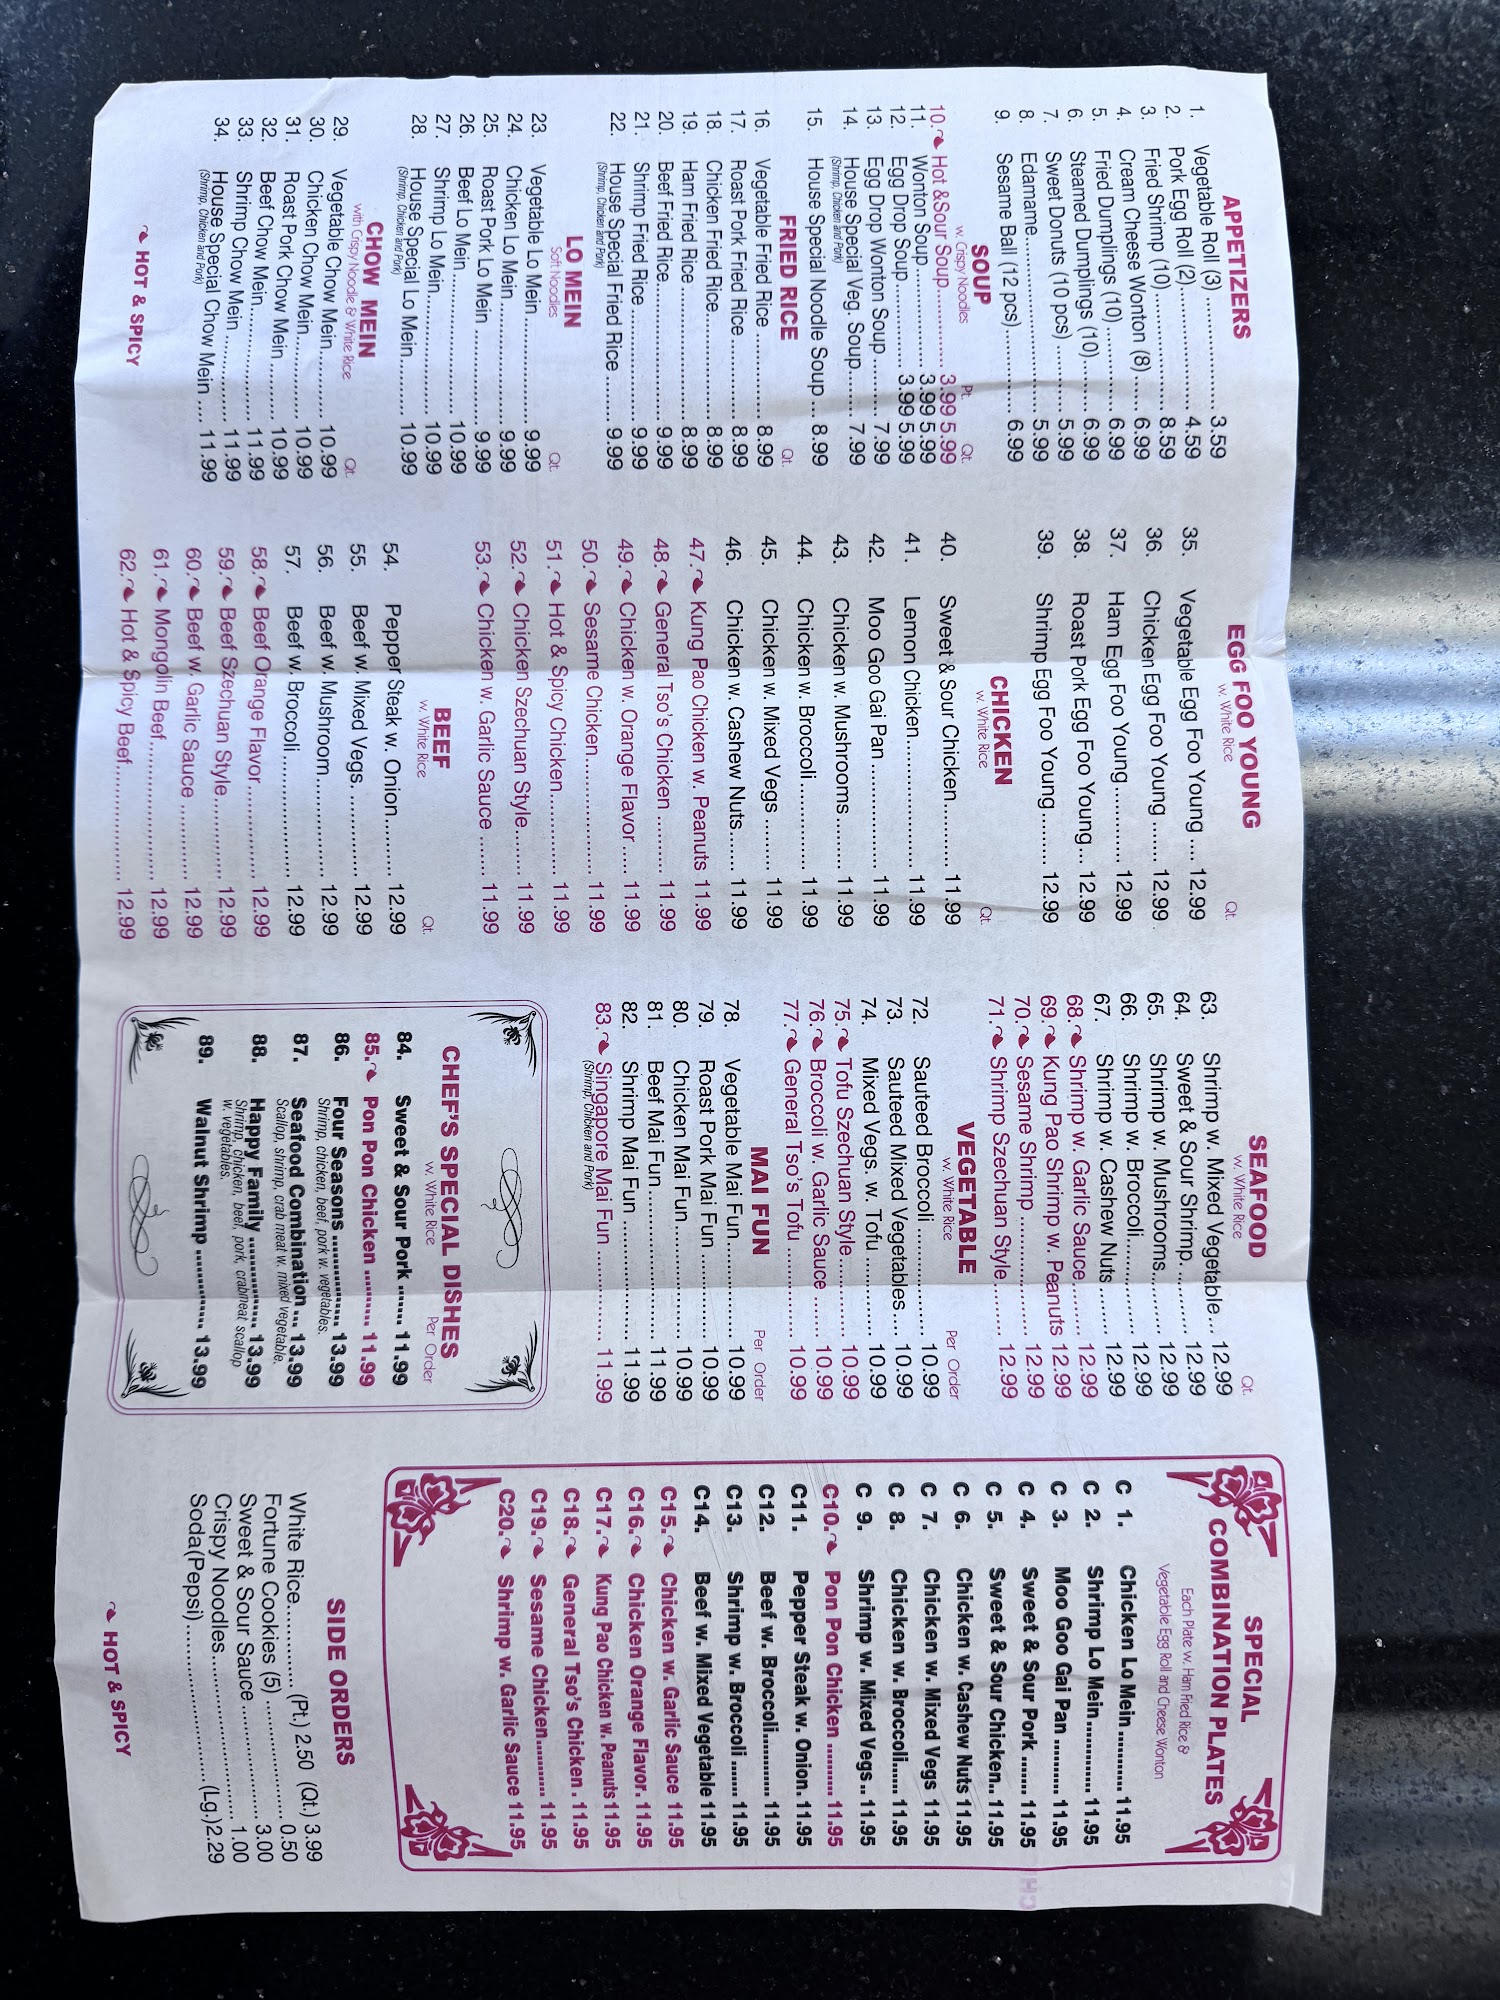 APPETIZERS
1. Vegetable Roll (3) ............... 3.59
2. Pork Egg Roll (2)................. 4.59
3. Fried Shrimp (10)................ 8.59
4. Cream Cheese Wonton (8) .... 6.99
5. Fried Dumplings (10) ........... 6.99
6. Steamed Dumplings (10)....... 6.99
7. Sweet Donuts (10 pcs) ......... 5.99
8. Edamame........................... 5.99
9. Sesame Ball (12 pcs) ........... 6.99
SOUP
w. Crispy Noodles Pt. Qt.
10. Hot &Sour Soup............... 3.99 5.99
11. Wonton Soup.................. 3.99 5.99
12. Egg Drop Soup................ 3.99 5.99
13. Egg Drop Wonton Soup .......... 7.99
14. House Special Veg. Soup....... 7.99
(Shrimp, Chicken and Pork)
15. House Special Noodle Soup ... 8.99
FRIED RICE Qt.
16. Vegetable Fried Rice ............ 8.99
17. Roast Pork Fried Rice........... 8.99
18. Chicken Fried Rice............... 8.99
19. Ham Fried Rice ................... 8.99
20. Beef Fried Rice.................... 9.99
21. Shrimp Fried Rice ................ 9.99
22. House Special Fried Rice ...... 9.99
(Shrimp, Chicken and Pork)
LO MEIN
Soft Noodles Qt.
23. Vegetable Lo Mein ............... 9.99
24. Chicken Lo Mein.................. 9.99
25. Roast Pork Lo Mein .............. 9.99
26. Beef Lo Mein..................... 10.99
27. Shrimp Lo Mein.................. 10.99
28. House Special Lo Mein ........ 10.99
(Shrimp, Chicken and Pork)
CHOW MEIN
with Crispy Noodle & White Rice Qt.
29. Vegetable Chow Mein.......... 10.99
30. Chicken Chow Mein............. 10.99
31. Roast Pork Chow Mein ........ 10.99
32. Beef Chow Mein................. 11.99
33. Shrimp Chow Mein ............. 11.99
34. House Special Chow Mein .... 11.99
(Shrimp, Chicken and Pork)
HOT & SPICY
EGG FOO YOUNG
w. White Rice Qt.
35. Vegetable Egg Foo Young .... 12.99
36. Chicken Egg Foo Young ...... 12.99
37. Ham Egg Foo Young .......... 12.99
38. Roast Pork Egg Foo Young... 12.99
39. Shrimp Egg Foo Young........ 12.99
CHICKEN
w. White Rice Qt.
40. Sweet & Sour Chicken.......... 11.99
41. Lemon Chicken................... 11.99
42. Moo Goo Gai Pan ............... 11.99
43. Chicken w. Mushrooms ........ 11.99
44. Chicken w. Broccoli.............. 11.99
45. Chicken w. Mixed Vegs ........ 11.99
46. Chicken w. Cashew Nuts...... 11.99
47. Kung Pao Chicken w. Peanuts 11.99
48. General Tso's Chicken ......... 11.99
49. Chicken w. Orange Flavor .... 11.99
50. Sesame Chicken................. 11.99
51. Hot & Spicy Chicken............ 11.99
52. Chicken Szechuan Style....... 11.99
53. Chicken w. Garlic Sauce ...... 11.99
BEEF
w. White Rice Qt.
54. Pepper Steak w. Onion........ 12.99
55. Beef w. Mixed Vegs. ........... 12.99
56. Beef w. Mushroom.............. 12.99
57. Beef w. Broccoli................. 12.99
58. Beef Orange Flavor............. 12.99
59. Beef Szechuan Style........... 12.99
60. Beef w. Garlic Sauce .......... 12.99
61. Mongolin Beef................... 12.99
62. Hot & Spicy Beef................ 12.99
SEAFOOD
w. White Rice Qt.
63. Shrimp w. Mixed Vegetable... 12.99
64. Sweet & Sour Shrimp.......... 12.99
65. Shrimp w. Mushrooms......... 12.99
66. Shrimp w. Broccoli.............. 12.99
67. Shrimp w. Cashew Nuts....... 12.99
68. Shrimp w. Garlic Sauce....... 12.99
69. Kung Pao Shrimp w. Peanuts 12.99
70. Sesame Shrimp ................. 12.99
71. Shrimp Szechuan Style....... 12.99
VEGETABLE
w. White Rice Per Order
72. Sauteed Broccoli ................ 10.99
73. Sauteed Mixed Vegetables... 10.99
74. Mixed Vegs. w. Tofu ............ 10.99
75. Tofu Szechuan Style............ 10.99
76. Broccoli w. Garlic Sauce ...... 10.99
77. General Tso's Tofu .............. 10.99
MAI FUN Per Order
78. Vegetable Mai Fun.............. 10.99
79. Roast Pork Mai Fun ............ 10.99
80. Chicken Mai Fun................. 10.99
81. Beef Mai Fun..................... 11.99
82. Shrimp Mai Fun ................. 11.99
83. Singapore Mai Fun ............. 11.99
(Shrimp, Chicken and Pork)
CHEF'S SPECIAL DISHES
w. White Rice Per Order
84. Sweet & Sour Pork ....... 11.99
85. Pon Pon Chicken .......... 11.99
86. Four Seasons .............. 13.99
Shrimp, chicken, beef, pork w. vegetables.
87. Seafood Combination ... 13.99
Scallop, shrimp, crab meat w. mixed vegetable.
88. Happy Family .............. 13.99
Shrimp, chicken, beef, pork, crabmeat, scallop
w. vegetables.
89. Walnut Shrimp ............. 13.99
SPECIAL
COMBINATION PLATES
Each Plate w. Ham Fried Rice &
Vegetable Egg Roll and Cheese Wonton
C 1. Chicken Lo Mein ............ 11.95
C 2. Shrimp Lo Mein.............. 11.95
C 3. Moo Goo Gai Pan ........... 11.95
C 4. Sweet & Sour Pork ........ 11.95
C 5. Sweet & Sour Chicken.. 11.95
C 6. Chicken w. Cashew Nuts 11.95
C 7. Chicken w. Mixed Vegs 11.95
C 8. Chicken w. Broccoli...... 11.95
C 9. Shrimp w. Mixed Vegs .. 11.95
C10. Pon Pon Chicken .......... 11.95
C11. Pepper Steak w. Onion. 11.95
C12. Beef w. Broccoli............ 11.95
C13. Shrimp w. Broccoli ....... 11.95
C14. Beef w. Mixed Vegetable 11.95
C15. Chicken w. Garlic Sauce 11.95
C16. Chicken Orange Flavor. 11.95
C17. Kung Pao Chicken w. Peanuts 11.95
C18. General Tso's Chicken . 11.95
C19. Sesame Chicken........... 11.95
C20. Shrimp w. Garlic Sauce 11.95
SIDE ORDERS
White Rice............... (Pt.) 2.50 (Qt.) 3.99
Fortune Cookies (5) ...................... 0.50
Sweet & Sour Sauce ..................... 3.00
Crispy Noodles............................. 1.00
Soda(Pepsi)........................... (Lg.)2.29
HOT & SPICY